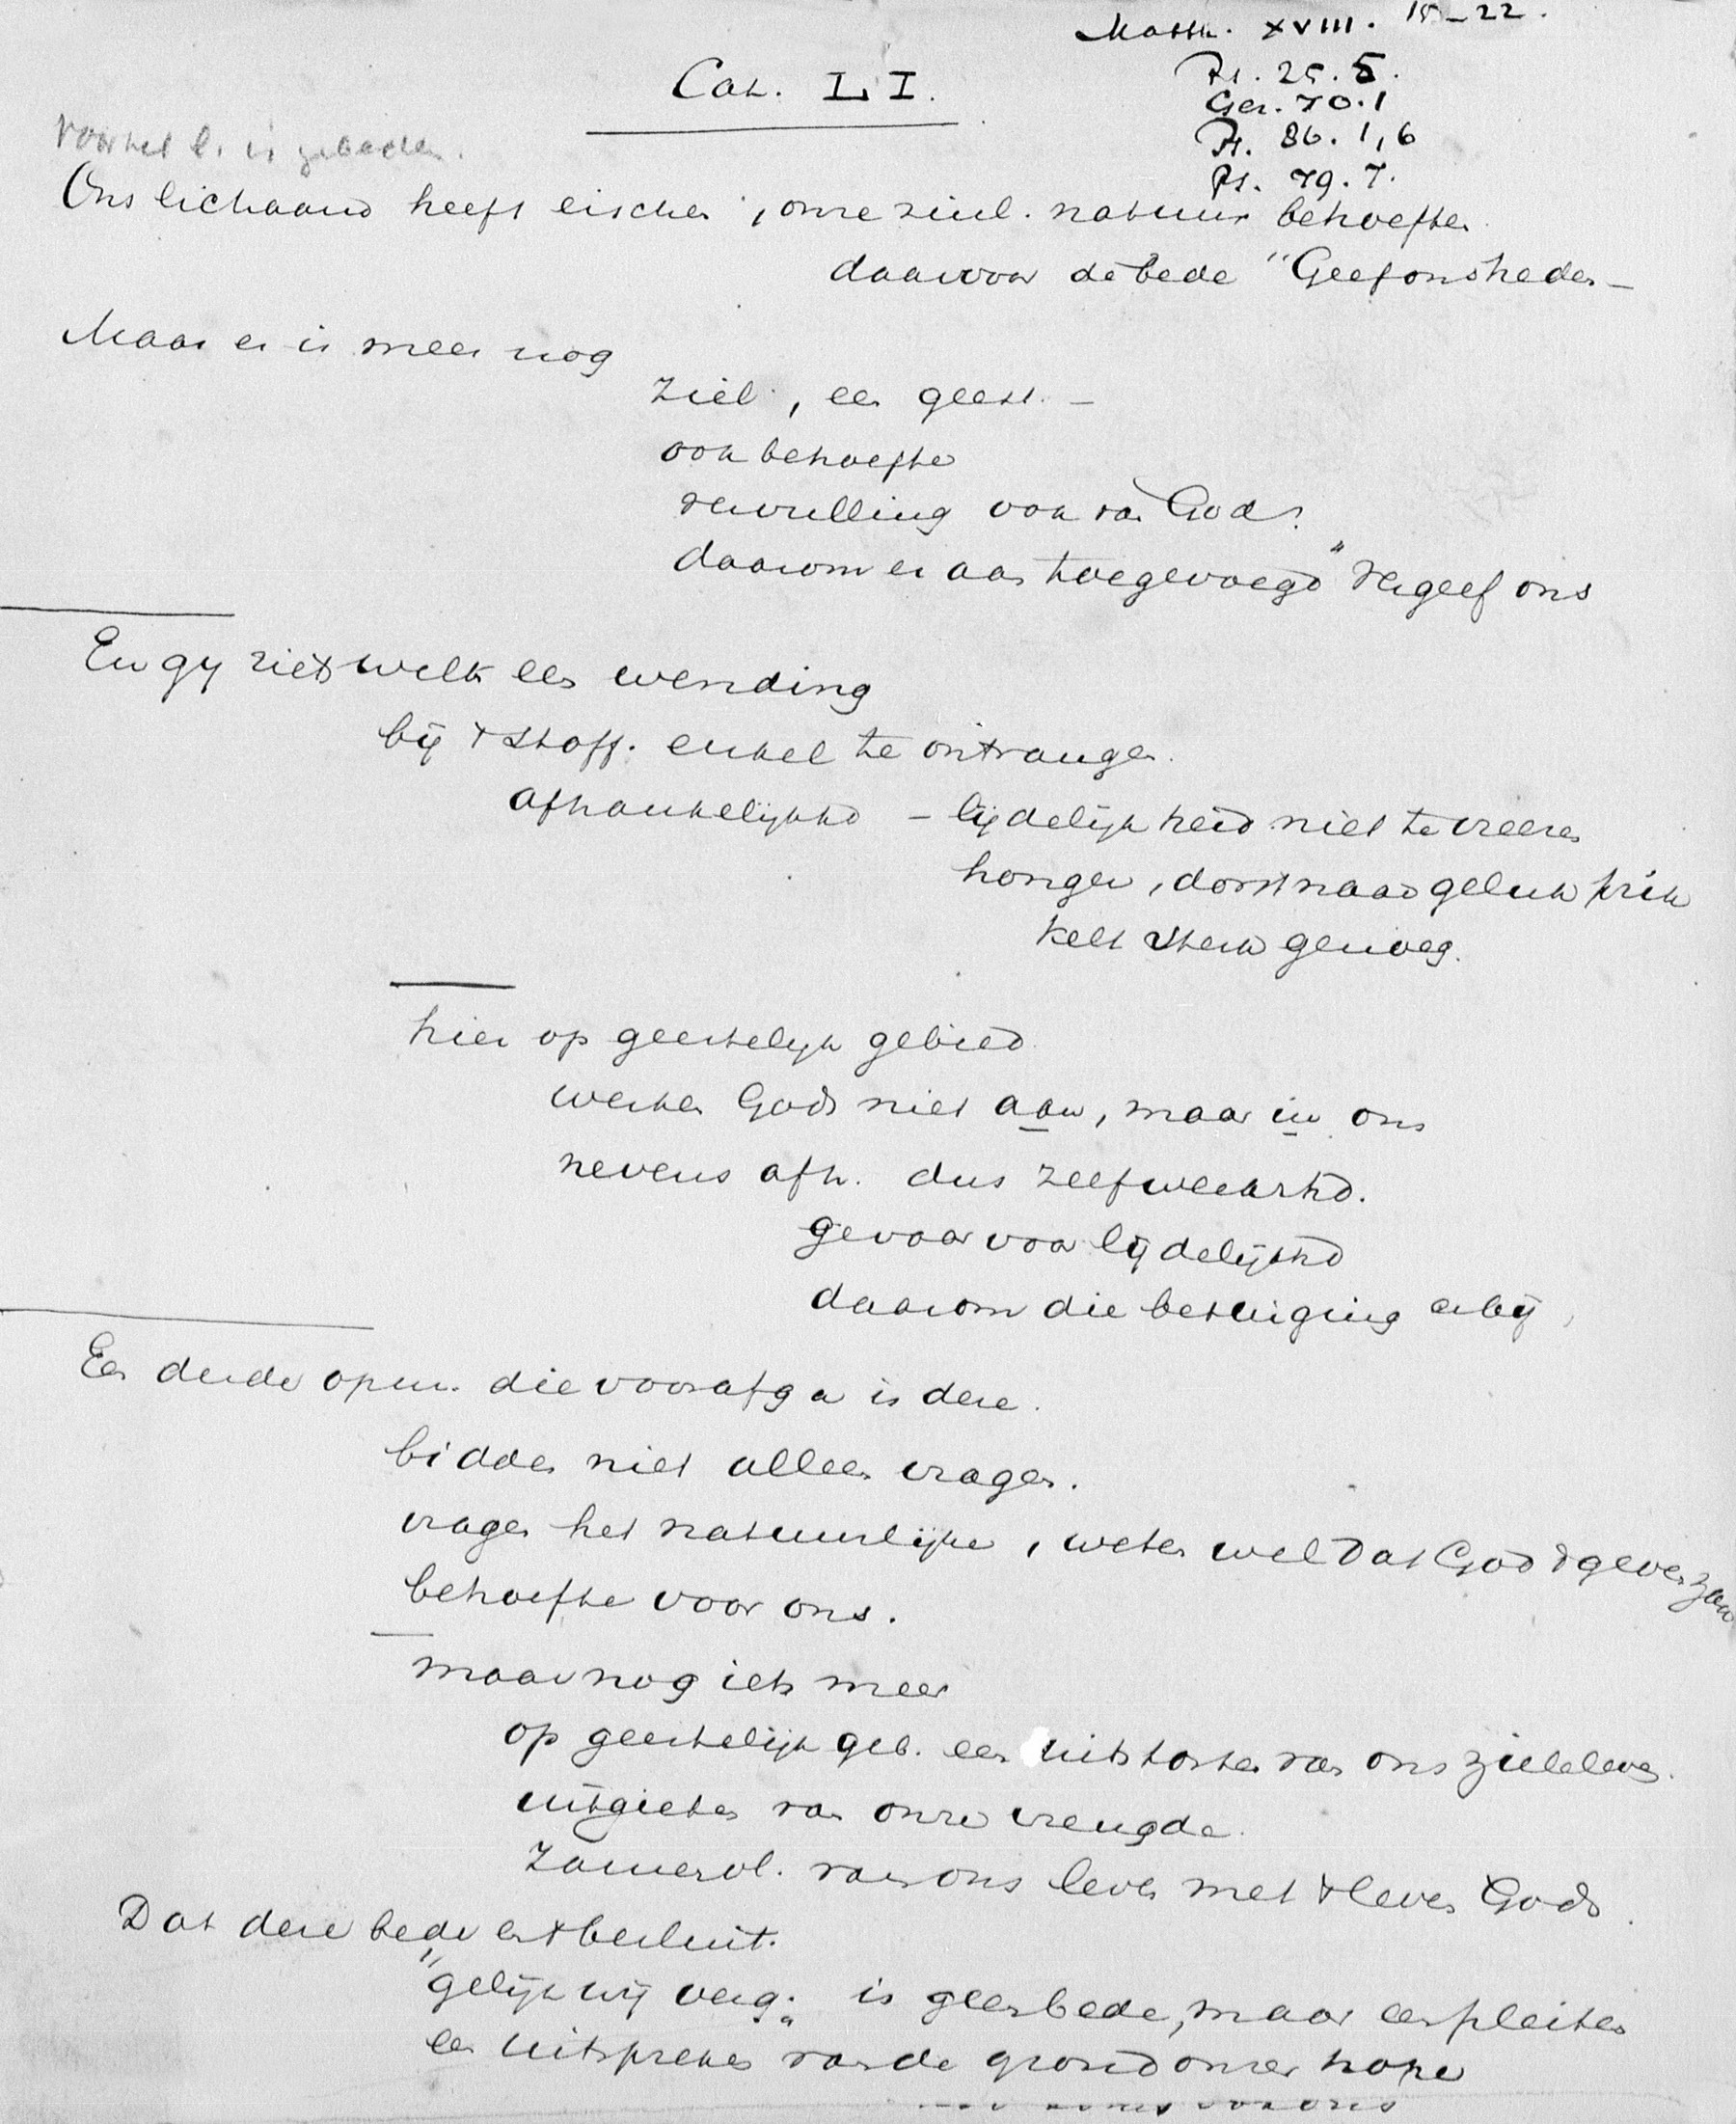 Matth. XVIII. 15-22.
Cat. LI.
Ps. 25.5.
Gez. 70.1
Ps. 86.1,6
Ps. 79.7.
Voor het l. is gebeden.
Ons lichaam heeft eischen, onze zinl. natuur behoeften
daarvoor de bede "Geef ons heden –
Maar er is meer nog
ziel, een geest. –
ook behoefte
vervulling ook van God.
daarom er aan toegevoegd "Vergeef ons
En gij ziet welk een wending
bij 't stoff. enkel te ontvangen.
afhankelijkhd – lijdelijkheid niet te vreezen
honger, dorst naar geluk prik
kelt sterk genoeg.
hier op geestelijk gebied
werken Gods niet aan, maar in ons
nevens afh. dus zelfwerkzhd.
gevaar voor lijdelijkhd
daarom die betuiging erbij,
Een derde opm. die vooraf ga is deze.
bidden niet alleen vragen.
vragen het natuurlijke, weten wel dat God 't geven zou
behoefte voor ons.
maar nog iets meer
op geestelijk geb. een uitstorten van ons zieleleven.
uitgieten van onze vreugde.
Zamenvl. van ons leven met 't leven Gods.
Dat deze bede er 't besluit.
"gelijk wij verg." is geen bede, maar een pleiten
een uitspreken van de grond onzer hope